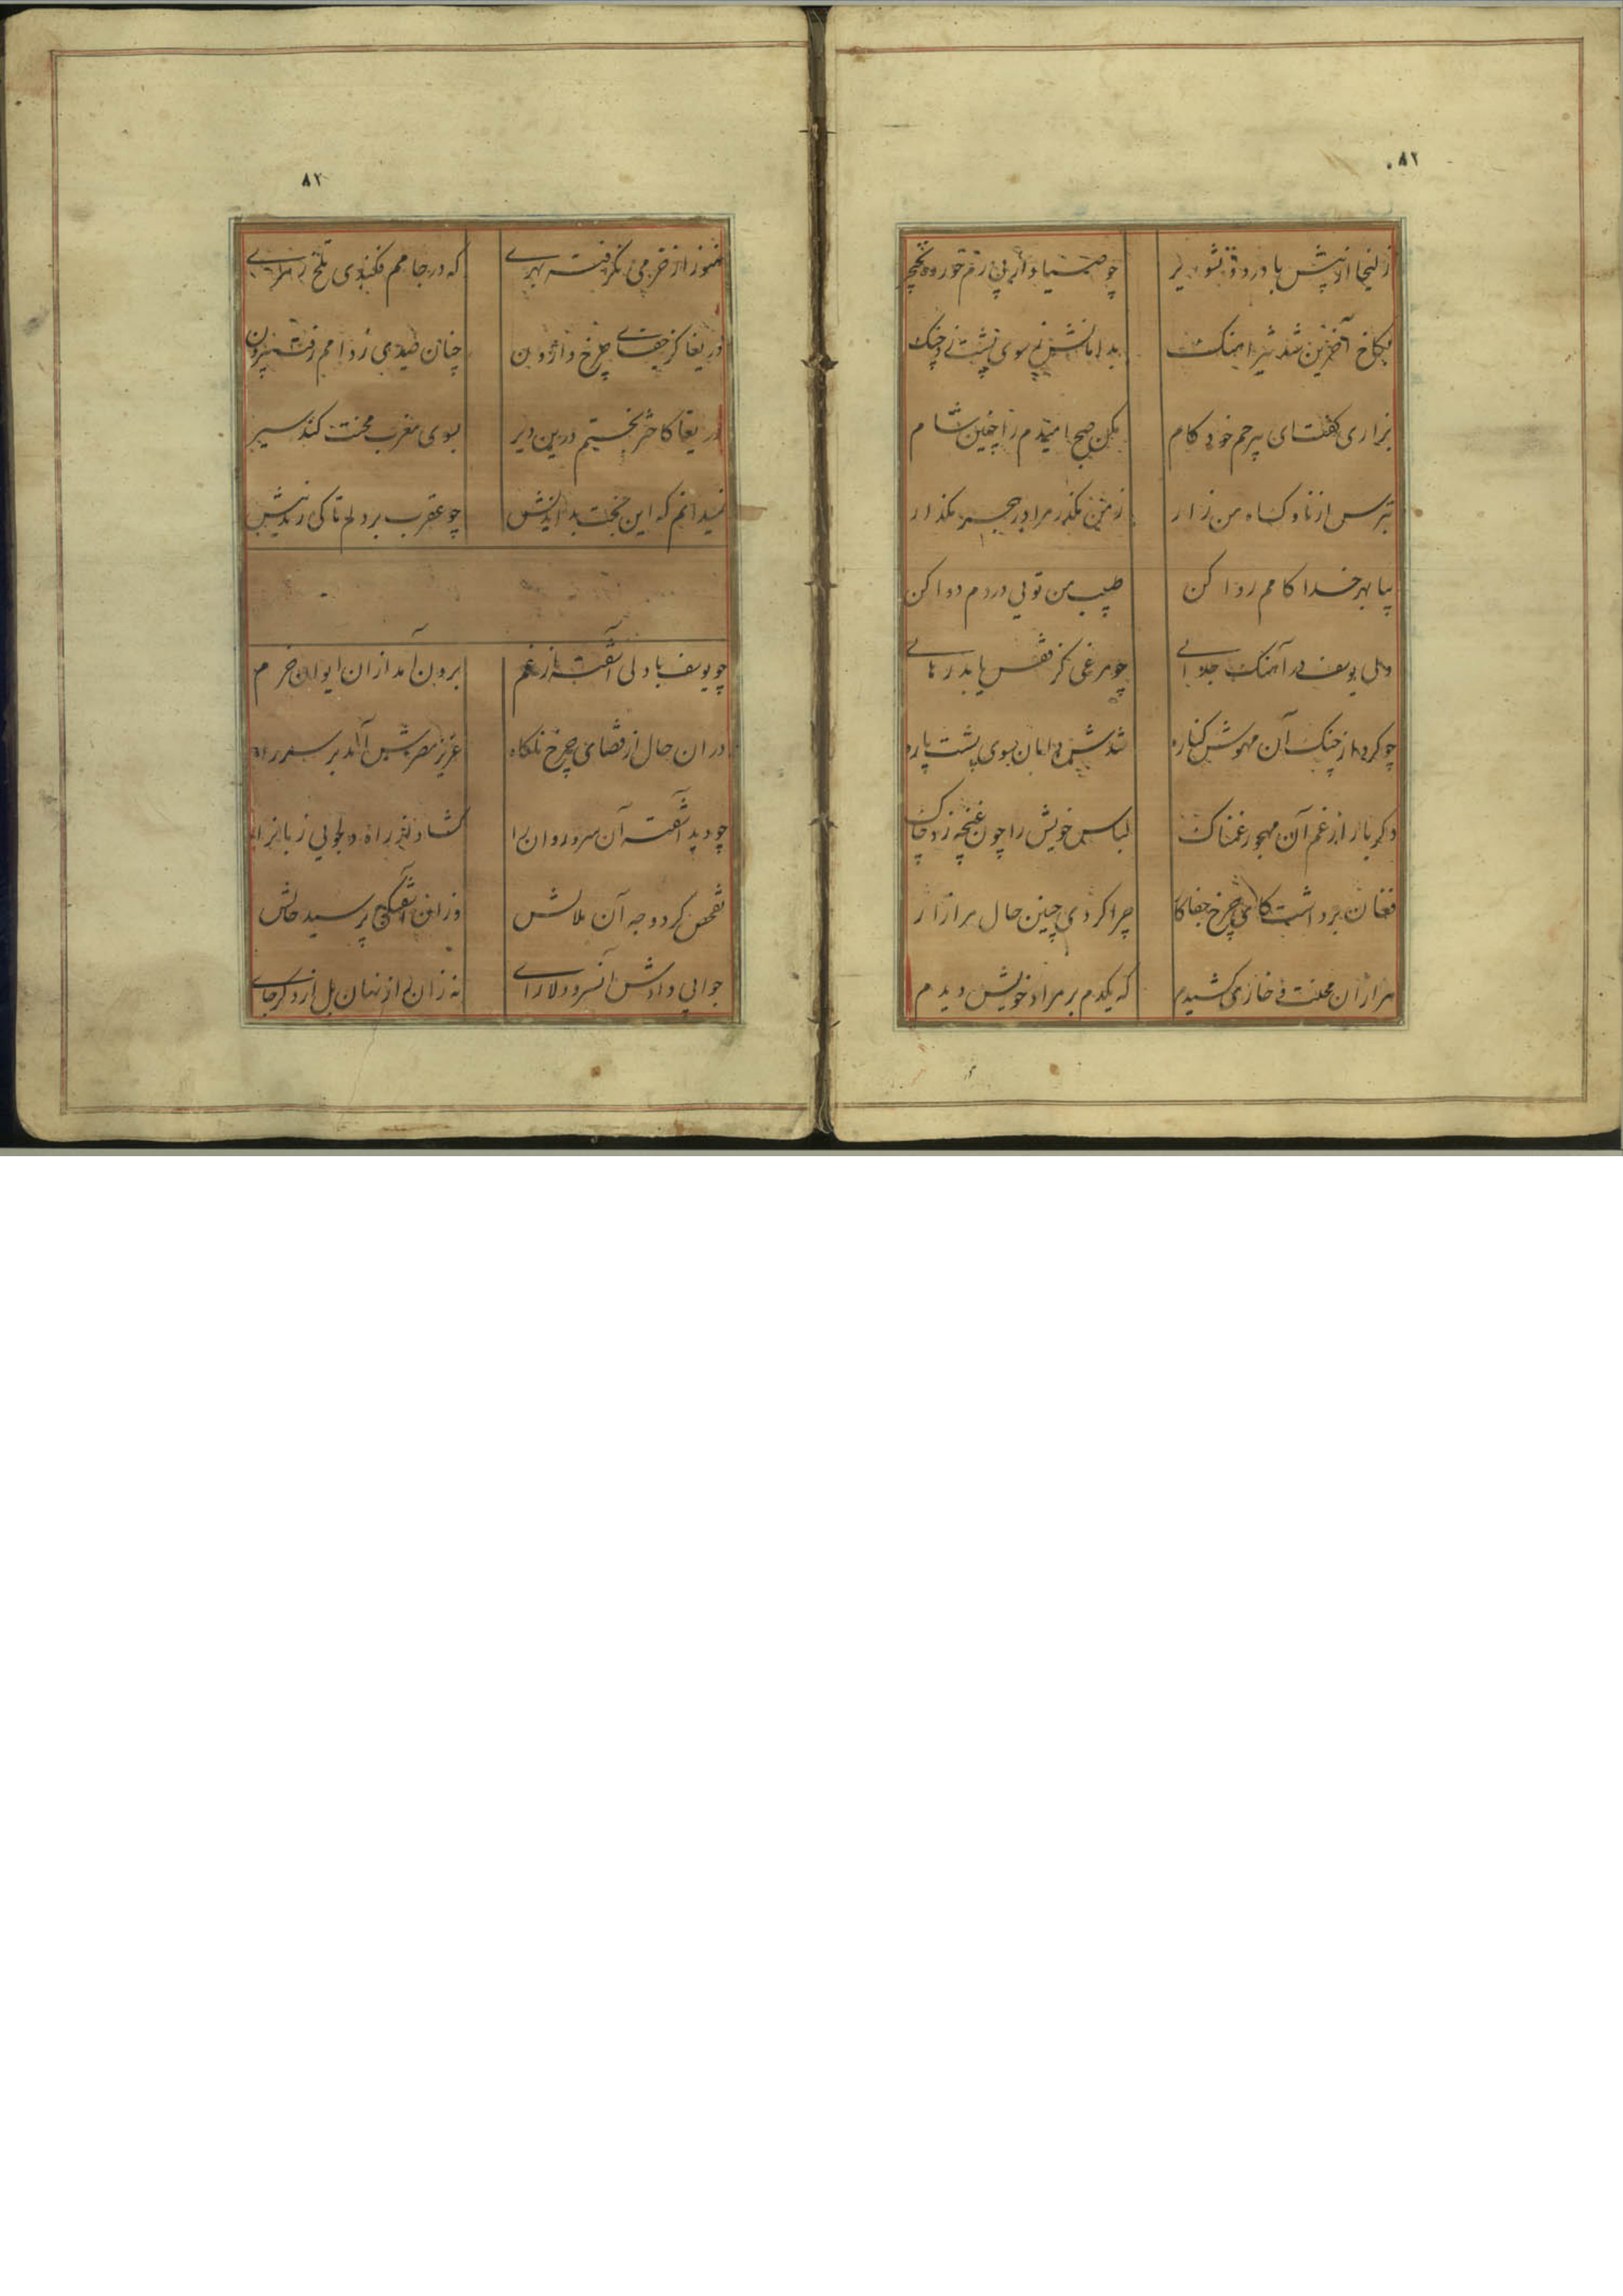 ۸۲
زلیخا از پیش با درد و تشویر چو صیاد از پی زخم خورده نخچیر
بکاخ آخرین شد تیز آهنگ بدامانش ز سوی پشت زد چنگ
بزاری گفت ای بیرحم خود کام مکن صبح امیدم را چنین شام
بترس از ناوک آه من زار ز من مگذر مرا در هجر مگذار
بیا بهر خدا کامم روا کن طبیب من تویی دردم دوا کن
ولی یوسف در آهنگ جدایی چو مرغی کز قفس یابد رهایی
چو کرد از چنگ آن مهوش کناره شدش دامان بسوی پشت پاره
دگر بار از غم آن مهجور غمناک لباس خویش را چون غنچه زد چاک
فغان برداشت کای چرخ جفاکار چرا کردی چنین حال مرا زار
هزاران محنت و خاری کشیدم که یکدم بر مراد خویش دیدم
۸۲
هنوز از خرمی نگرفته بهری که در جامم فکندی تلخ زهری
دریغا کز جفای چرخ واژون چنان صیدی ز دامم رفت بیرون
دریغا کاختر بختم درین دیر بسوی مغرب محنت کند سیر
نمیدانم که این بخت بداندیش چو عقرب بر دلم تا کی زند نیش
چو یوسف با دلی آشفته از غم برون آمد از ان ایوان خرم
در ان حال از قضای چرخ ناگاه عزیز مصرش آمد بر سر راه
چو دید آشفته آن سرو روان را گشاد از راه دلجویی زبان را
تفحص کرد وجه آن ملالش وزان آشفتگی پرسید حالش
جوابی دادش آن سرو دلارای نه زان راز نهان بل از دگر جای